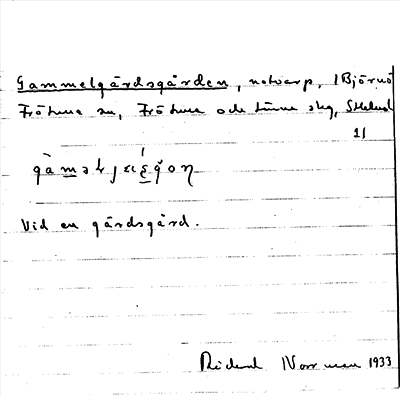 Gammelgärdsgården, notvarp, 1 Björnö
Frötuna sn, Frötuna och Länna skg, Sthlms l
21
Vid en gärdsgård.
Rickard Norrman 1933